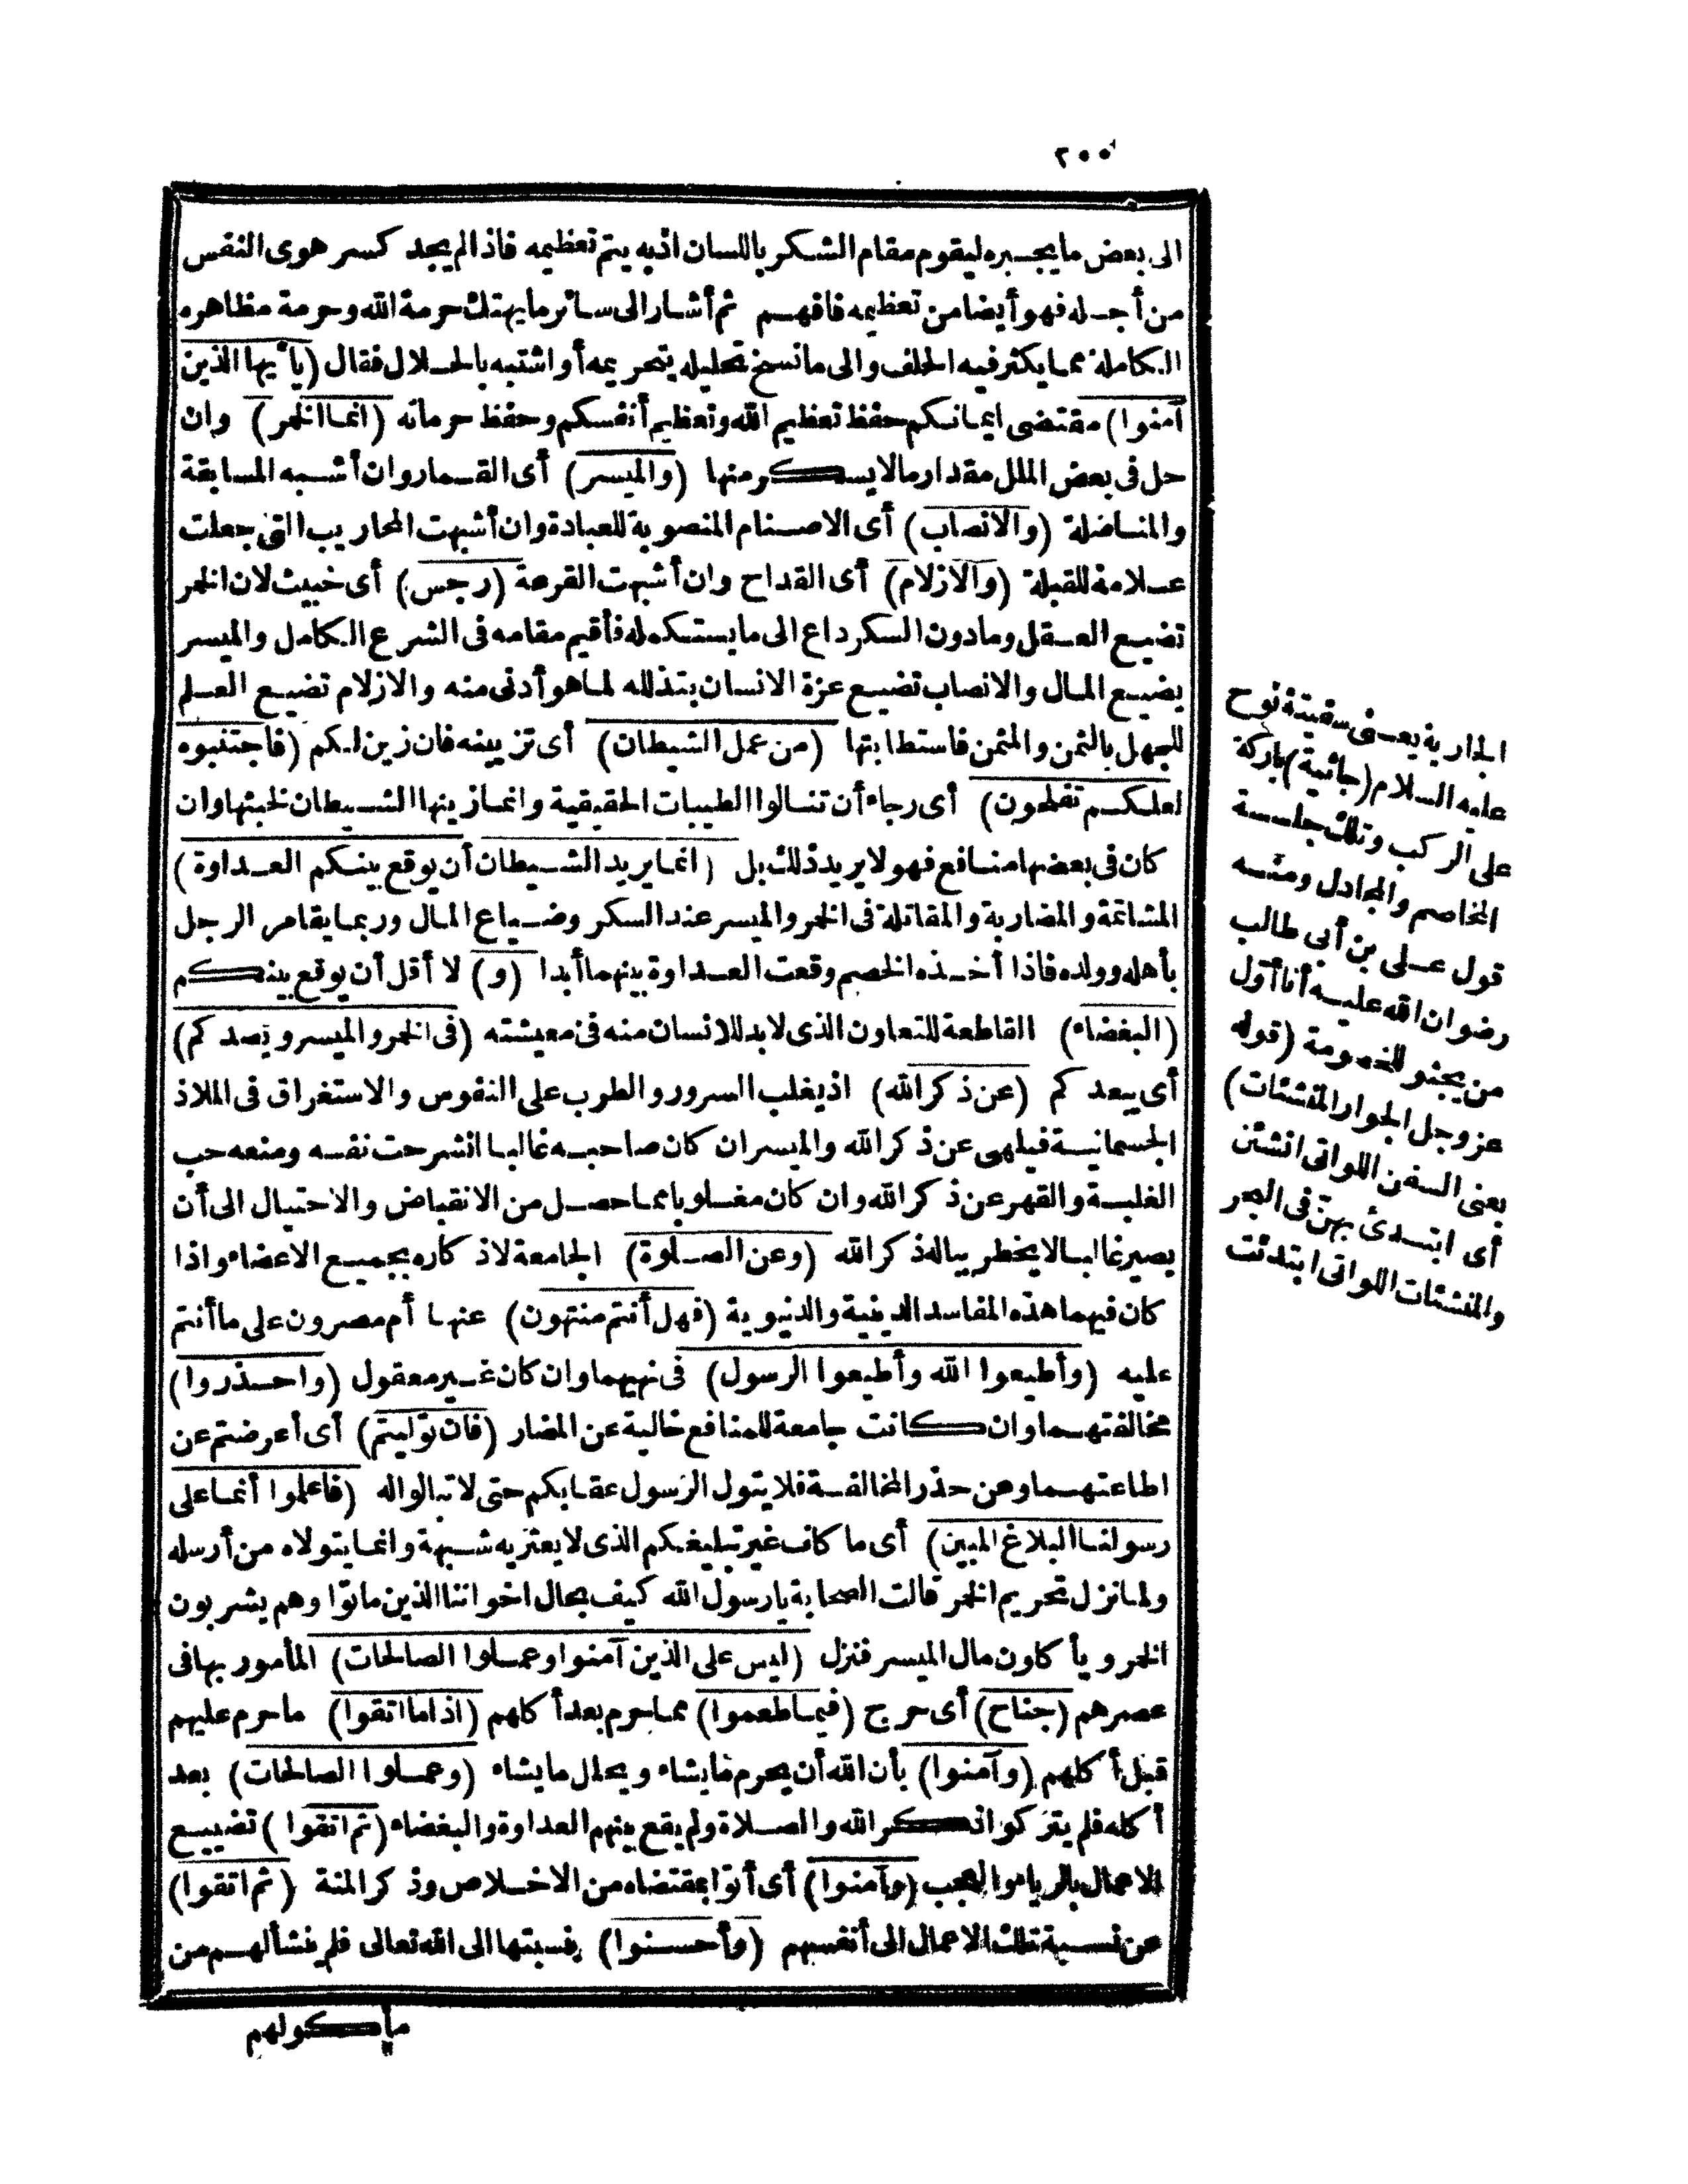 ٢٠٠
الى بعض ما يجبره ليقوم مقام الشكر باللسان اذ به يتم تعظيمه فاذا لم يجد كسر هوى النفس
من أجله فهو أيضا من تعظيمه فافهم ثم أشار الى سائر ما يهتك حرمة الله وحرمة مظاهره
الكاملة مما يكثر فيه الحلف والى ما نسخ تحليله بتحريمه أو اشتبه بالحلال فقال (يا أيها الذين
آمنوا) مقتضى ايمانكم حفظ تعظيم الله وتعظيم أنفسكم وحفظ حرماته (انما الخمر) وان
حل فى بعض الملل مقدار ما لا يسكر منها (والميسر) أى القمار وان أشبه المسابقة
والمناضلة (والانصاب) أى الاصنام المنصوبة للعبادة وان أشبهت المحاريب التى جعلت
علامة للقبلة (والازلام) أى القداح وان أشبهت القرعة (رجس) أى خبيث لان الخمر
تضيع العقل وما دون السكر داع الى ما يستكمله فأقيم مقامه فى الشرع الكامل والميسر
يضيع المال والانصاب تضيع عزة الانسان بتذلله لما هو أدنى منه والازلام تضيع العلم
للجهل بالثمن والمثمن فاستطابتها (من عمل الشيطان) أى تزيينه فان زين لكم (فاجتنبوه
لعلكم تفلحون) أى رجاء أن تنالوا الطيبات الحقيقية وانما زينها الشيطان لخبثها وان
كان فى بعضها منافع فهو لا يريد ذلك بل (انما يريد الشيطان أن يوقع بينكم العداوة)
المشاتمة والمضاربة والمقاتلة فى الخمر والميسر عند السكر وضياع المال وربما يقامر الرجل
بأهله وولده فاذا أخذه الخصم وقعت العداوة بينهما أبدا (و) لا أقل أن يوقع بينكم
(البغضاء) القاطعة للتعاون الذى لا بد للانسان منه فى معيشته (فى الخمر والميسر ويصدكم)
أى يبعدكم (عن ذكر الله) اذ يغلب السرور والطرب على النفوس والاستغراق فى الملاذ
الجسمانية فيلهى عن ذكر الله والميسر ان كان صاحبه غالبا انشرحت نفسه ومنعه حب
الغلبة والقهر عن ذكر الله وان كان مغلوبا مما حصل من الانقباض والاحتيال الى أن
يصير غالبا لا يخطر بباله ذكر الله (وعن الصلوة) الجامعة لاذكاره بجميع الاعضاء واذا
كان فيهما هذه المفاسد الدينية والدنيوية (فهل أنتم منتهون) عنها أم مصرون على ما أنتم
عليه (وأطيعوا الله وأطيعوا الرسول) فى نهيهما وان كان غير معقول (واحذروا)
مخالفتهما وان كانت جامعة للمنافع خالية عن المضار (فان توليتم) أى أعرضتم عن
اطاعتهما وعن حذر المخالفة فلا يتول الرسول عقابكم حتى لا تبالوا له (فاعلموا أنما على
رسولنا البلاغ المبين) أى ما كان غير تبليغكم الذى لا يعتريه شبهة وانما يتولاه من أرسله
ولما نزل تحريم الخمر قالت الصحابة يا رسول الله كيف بحال اخواننا الذين ماتوا وهم يشربون
الخمر ويأكلون مال الميسر فنزل (ليس على الذين آمنوا وعملوا الصالحات) المأمور بها فى
عصرهم (جناح) أى حرج (فيما طعموا) مما حرم بعد أكلهم (اذا ما اتقوا) ما حرم عليهم
قبل أكلهم (وآمنوا) بأن الله أن يحرم ما يشاء ويحلل ما يشاء (وعملوا الصالحات) بعد
أكله فلم يتركوا ذكر الله والصلاة ولم يقع بينهم العداوة والبغضاء (ثم اتقوا) تضييع
الاعمال بالرياء والعجب (وآمنوا) أى أتوا بمقتضاه من الاخلاص وذكر المنة (ثم اتقوا)
عن نسبة تلك الاعمال الى أنفسهم (وأحسنوا) بنسبتها الى الله تعالى فلم ينشأ لهم من
مأكولهم
الجارية يعنى سفينة نوح
عليه السلام (جاثية) باركة
على الركب وتلك جلسة
المخاصم والمجادل ومنه
قول على بن أبى طالب
رضوان الله عليه أنا أول
من يجثو للخصومة (قوله
عز وجل الجوار المنشئات)
يعنى السفن اللواتى انشئن
أى ابتدئ بهن فى البحر
والمنشئات اللواتى ابتدئت